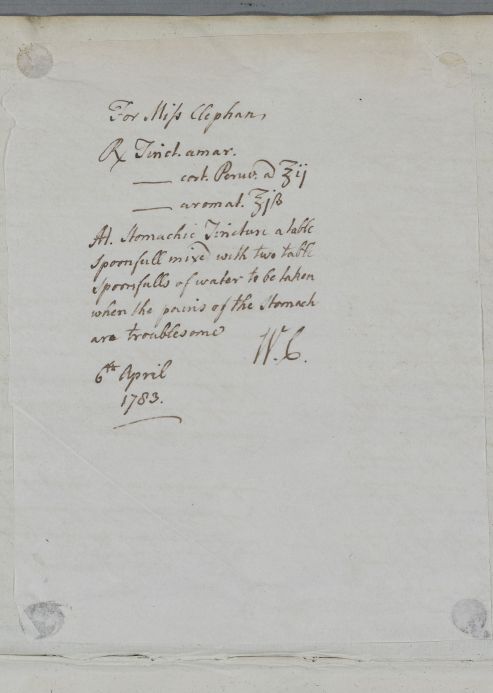 For Miſs Clephan,
℞ Tinct. amar.
—— cort. Peruv. a ℥ij
—— aromat. ℥jß
M. Stomachic Tincture a table
spoonfull mixed with two table
spoonfulls of water to be taken
when the pains of the Stomach
are troublesome
W. C.
6th April
1783.